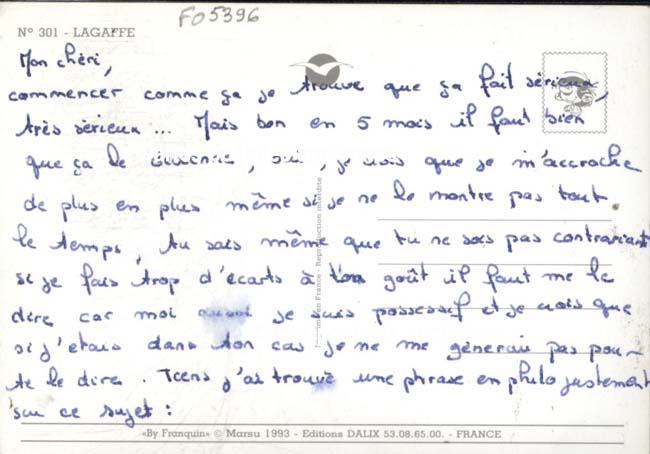 FO5396
N° 301 - LAGAFFE
Mon chéri,
commencer comme ça je trouve que ça fait sérieux,
très sérieux... Mais bon en 5 mois il faut bien
que ça le devienne, oui, je crois que je m'accroche
de plus en plus même si je ne le montre pas tout
le temps, tu sais même que tu ne sois pas contrariant
si je fais trop d'écarts à ton goût il faut me le
dire car moi aussi je suis possessif et je crois que
si j'étais dans ton cas je ne me gênerai pas pour
te le dire. Tiens j'ai trouvé une phrase en philo justement
sur ce sujet :
«By Franquin» © Marsu 1993 - Editions DALIX 53.08.65.00. - FRANCE
Reproduction interdite